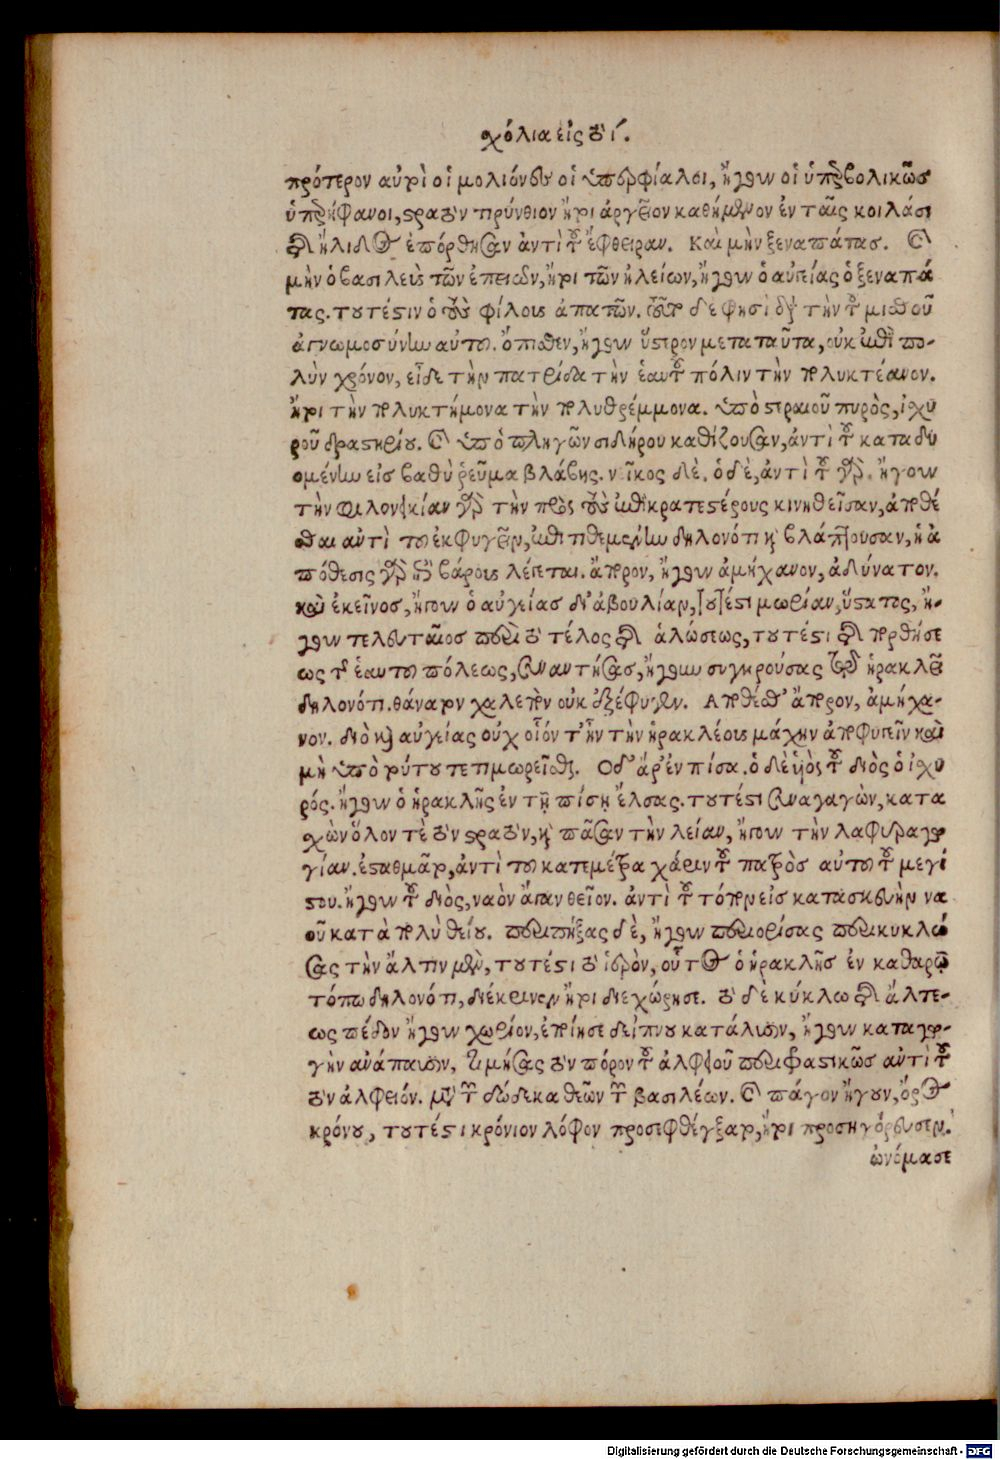 σχόλια εἰς τὸ ί.
πρότερον αὐτὸν οἱ μολιόνες οἱ ὑπερφίαλοι, ἤγουν οἱ ὑπερβολικῶς
ὑπερήφανοι, στρατὸν τιρύνθιον ἤτοι ἀργεῖον καθήμενον ἐν ταῖς κοιλάσι
τῆς ἤλιδος ἐπόρθησαν ἀντὶ τοῦ ἔφθειραν. Καὶ μὴν ξεναπάτας. καὶ
μὴν ὁ βασιλεὺς τῶν ἐπειῶν, ἤτοι τῶν ἠλείων, ἤγουν ὁ αὐγείας ὁ ξεναπά
τας. τουτέστιν ὁ τοὺς φίλους ἀπατῶν. τοῦτο δέ φησι διὰ τὴν τοῦ μισθοῦ
ἀγνωμοσύνην αὐτοῦ. ὄπιθεν, ἤγουν ὕστερον μετὰ ταῦτα, οὐκ ἐπὶ πο-
λὺν χρόνον, εἶδε τὴν πατρίδα τὴν ἑαυτοῦ πόλιν τὴν πολυκτέανον.
ἤτοι τὴν πολυκτήμονα τὴν πολυθρέμμονα. ὑπὸ στερεοῦ πυρὸς, ἰσχυ
ροῦ δραστηρίου. καὶ ὑπὸ πληγῶν σιδήρου καθίζουσαν, ἀντὶ τοῦ καταδυ
ομένην εἰς βαθὺ ῥεῦμα βλάβης. νεῖκος δὲ. ὁ δὲ, ἀντὶ τοῦ γὰρ. ἤγουν
τὴν φιλονεικίαν γὰρ τὴν πρὸς τοὺς ἐπικρατεστέρους κινηθεῖσαν, ἀποθέ
σθαι ἀντὶ τοῦ ἐκφυγεῖν, ἐπιτιθεμένην δηλονότι καὶ βλάπτουσαν, ἡ ἀ
πόθεσις γὰρ ἐπὶ βάρους λέγεται. ἄπορον, ἤγουν ἀμήχανον, ἀδύνατον.
καὶ ἐκεῖνος, ἤγουν ὁ αὐγείας δι' ἀβουλίαν, τουτέστι μωρίαν, ὕστατος, ἤ-
γουν τελευταῖος περὶ τὸ τέλος τῆς ἁλώσεως, τουτέστι τῆς πορθήσε
ως τῆς ἑαυτοῦ πόλεως, συναντήσας, ἤγουν συγκρούσας τῷ ἡρακλεῖ
δηλονότι. θάνατον χαλεπὸν οὐκ ἐξέφυγεν. Αποθέσθ' ἄπορον, ἀμήχα-
νον. διὸ καὶ αὐγείας οὐχ οἷόν τ' ἦν τὴν ἡρακλέους μάχην ἀποφυγεῖν καὶ
μὴ ὑπὸ τούτου τετιμωρεῖσθαι. Οδ' ἄρ' ἐν πίσα. ὁ δὲ υἱὸς τοῦ διὸς ὁ ἰσχυ
ρός. ἤγουν ὁ ἡρακλῆς ἐν τῇ πίσῃ ἔλσας. τουτέστι συναγαγὼν, κατα
σχὼν ὅλον τὲ τὸν στρατὸν, καὶ πᾶσαν τὴν λείαν, ἤγουν τὴν λαφυραγω
γίαν. ἐσταθμᾶτο, ἀντὶ τοῦ κατεμέτρα χάριν τοῦ πατρὸς αὐτοῦ τοῦ μεγί
στου. ἤγουν τοῦ διὸς, ναὸν ἅπαν θεῖον. ἀντὶ τοῦ τόπον εἰς κατασκευὴν να
οῦ κατὰ πολὺ θείου. περιπήξας δὲ, ἤγουν περιορίσας περικυκλώ
σας τὴν ἄλτιν μὲν, τουτέστι τὸ ἱερὸν, οὗτος ὁ ἡρακλῆς ἐν καθαρῷ
τόπω δηλονότι, διέκρινεν ἤτοι διεχώρησε. τὸ δὲ κύκλω τῆς ἄλτε-
ως πέδον ἤγουν χωρίον, ἐποίησε δείπνου κατάλυσιν, ἤγουν καταγω-
γὴν ἀνάπαυσιν, τιμήσας τὸν πόρον τοῦ ἀλφειοῦ περιφραστικῶς ἀντὶ τοῦ
τὸν ἀλφειόν. μετὰ τῶν δώδεκα θεῶν τῶν βασιλέων. καὶ πάγον ἤγουν, ὄρος
κρόνου, τουτέστι κρόνιον λόφον προσεφθέγξατο, ἤτοι προσηγόρευσεν.
ὠνόμασε
Digitalisierung gefördert durch die Deutsche Forschungsgemeinschaft - DFG